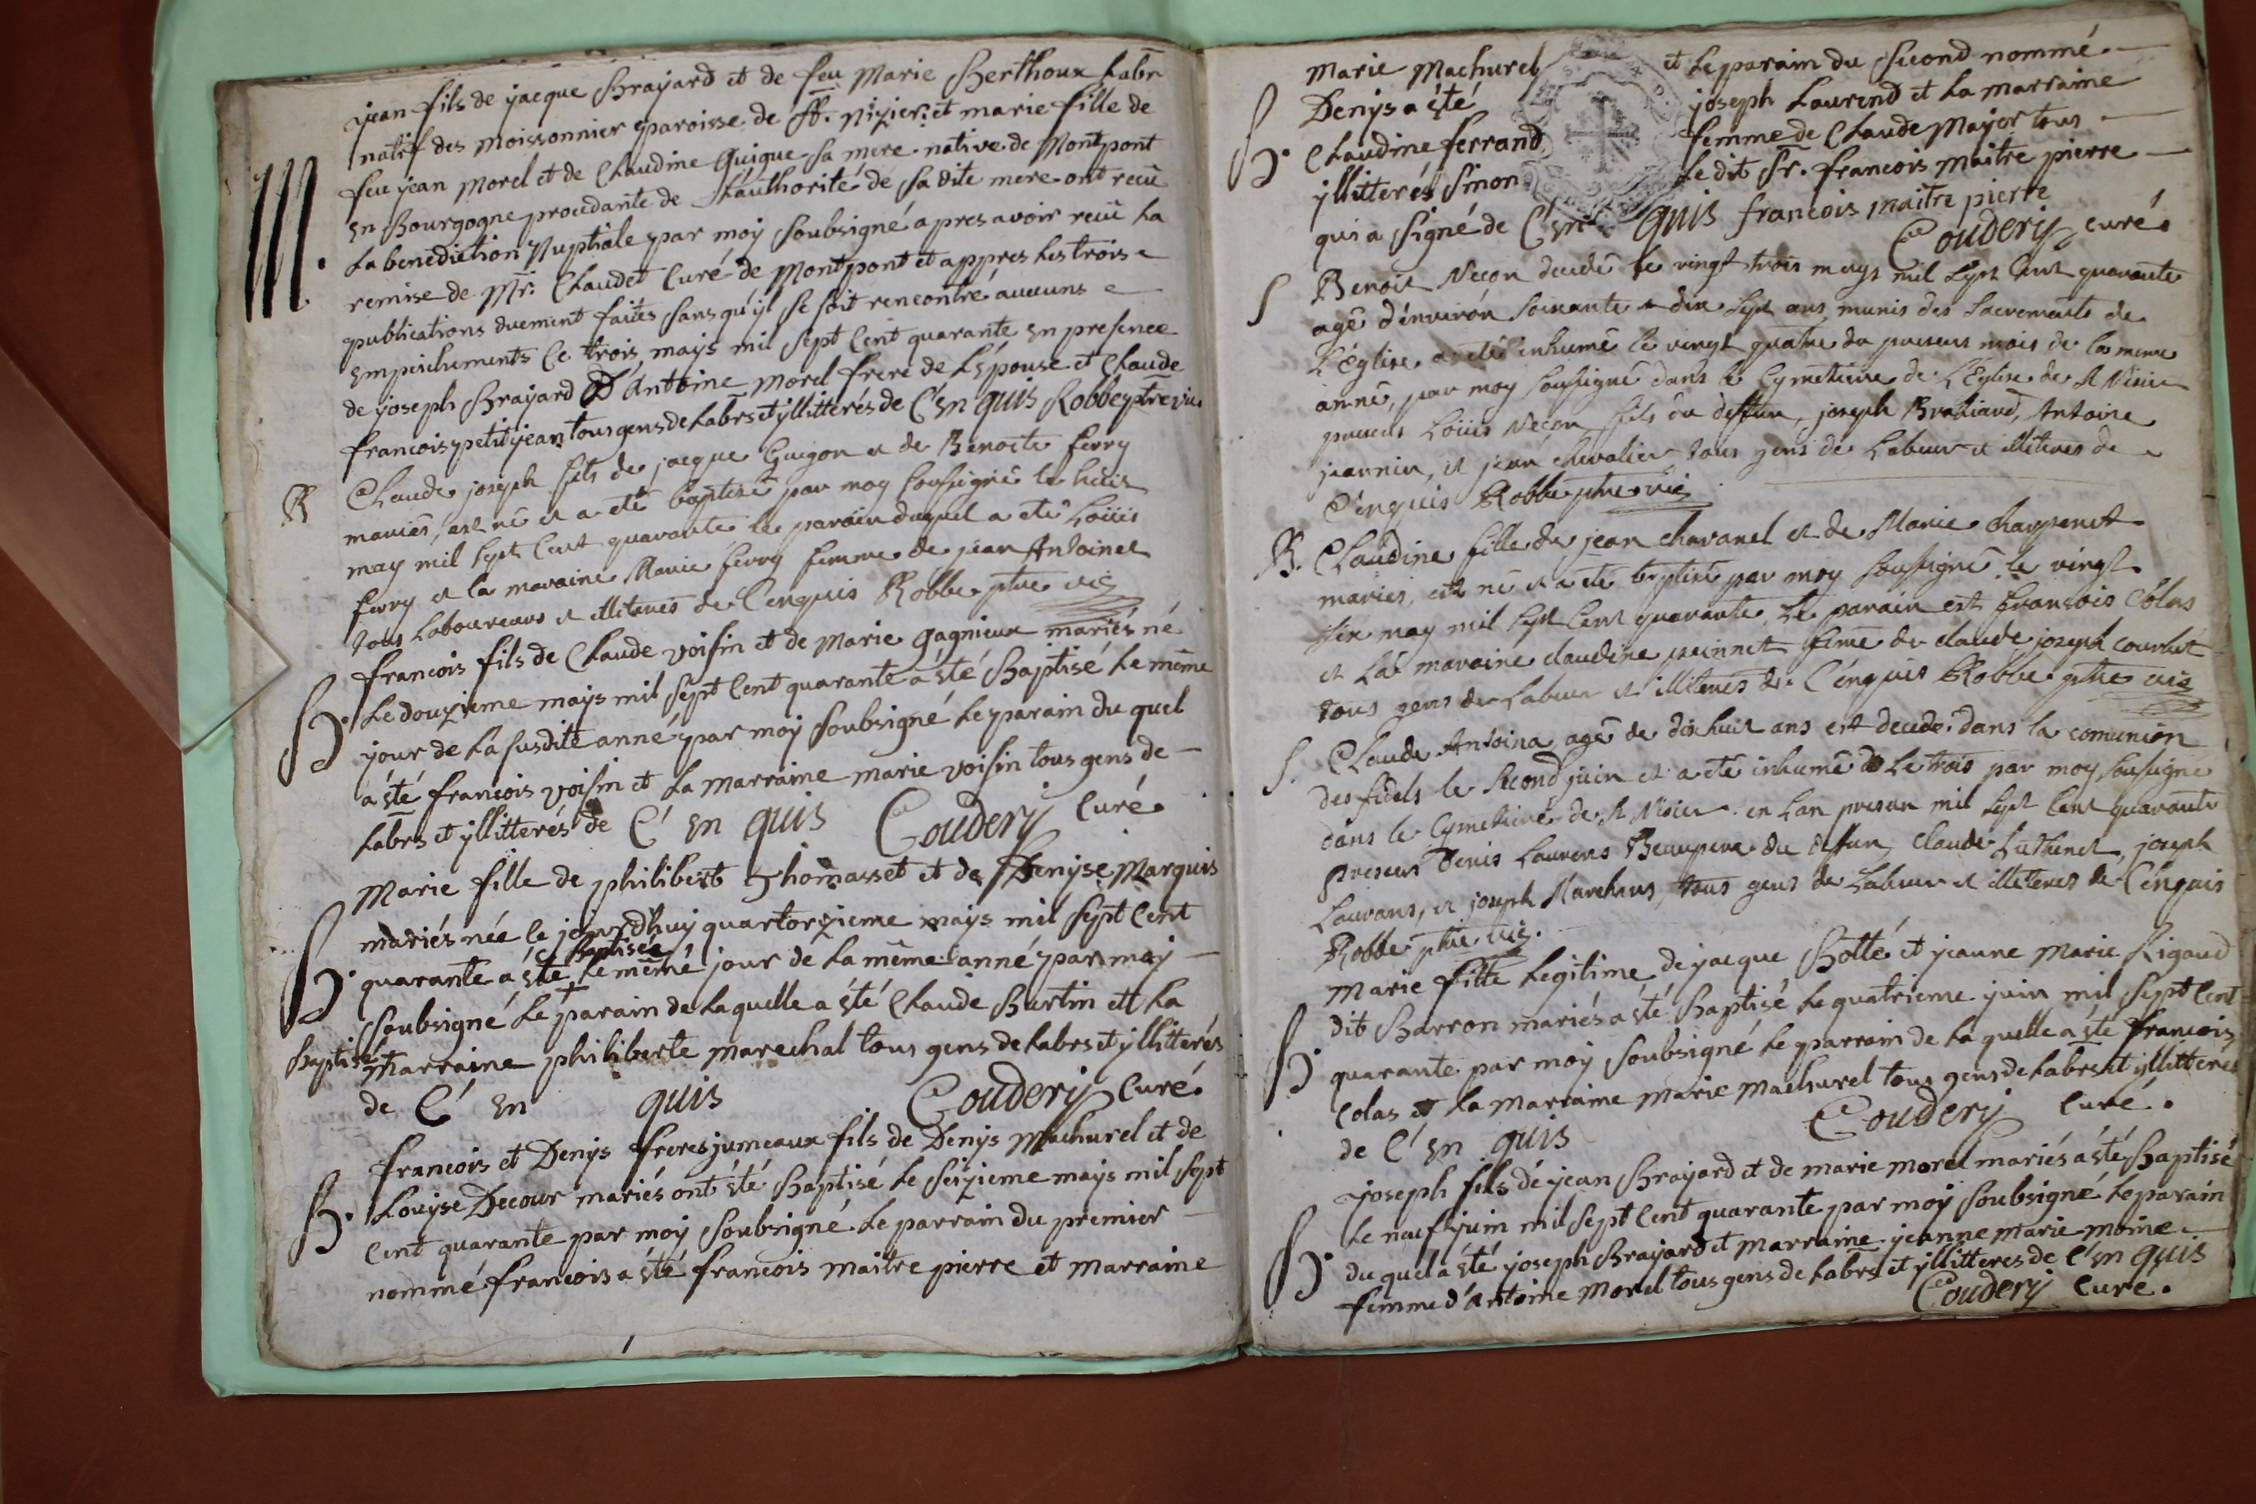 jean fils de jacque Brayard et de feu Marie Berthoux labr
natif des moissonnier paroisse de St. nizier: et marie fille de
feu jean morel et de Claudine Guigue sa mere native de Montpont
en Bourgogne procedante de L'authorité de sa dite mere ont recu
La benediction Nuptiale par moy soubsigné apres avoir recu la
remise de Mr: Chaudet Curé de Montpont et appres les trois
publications duement faites sans qu'yl se soit rencontré aucuns
empechements Ce trois mays mil sept Cent quarante en presence
de joseph Brayard D'Antoine morel frere de L'épouse et Claude
francois petitjean tous gens de labrs et yllitterés de C'en quis Robbe ptre vic
M.
B Claude joseph fils de jacque Guigon et de Benoite ferry
mariés, est né et a eté baptisé par moy sousigné le huit
may mil sept cent quarante le parain duquel a eté Loüis
ferry et la maraine Marie ferry femme de jean Antoinet
tous laboureurs et illiterés de C'enquis Robbe ptre vic
francois fils de Claude voisin et de Marie gagnieux mariés né
B. Le douzieme mays mil sept Cent quarante a été Baptisé le même
jour de La susdite anné par moy soubsigné Le parain du quel
a été francois voisin et La marraine marie voisin tous gens de
Labrs et yllitterés de C'en quis Coudery Curé.
Marie fille de philibert Thomasset et de Denyse Marquis
mariés née le jourd'huy quartorzieme mays mil sept Cent
B. quarante a été Baptisée Le même jour de La même anné par moy
soubsigné Le parain de Laquelle a été Claude Burtin ett La
Baptisé marraine philiberte marechal tous gens de labrs et yllitterés
de C'en quis Coudery Curé.
francois et Denys freres jumeaux fils de Denys Machurel et de
B. Louyse Decour mariés ont été Baptisé Le seizieme mays mil sept
Cent quarante par moy soubsigné Le parrain du premier
nommé francois a été francois maitre pierre et marraine
Marie Machurel et Le parain du second nommé
B. Denys a été joseph Laurend et La marraine
Claudine ferrand femme de Claude Mayer tous
yllitterés sinon Le dit Sr. francois maitre pierre
qui a signé de C'en quis francois maitre pierre
Coudery Curé
S Benoit Neçon decedé le vingt trois mays mil sept cent quarante
agé d'environ soixante et dix sept ans munis des sacrements de
L'Eglise a eté inhumé le vingt quatre du present mois de la meme
anné, par moy sousigné dans le Cymetiere de L'Eglise de St Nisier
presens Loüis Neçon fils du deffun, joseph Antoine
jeannin, et jean chevalier tous gens de labeur et illiteres de
C'enquis Robbe ptre vic
B. Claudine fille de jean chavanel et de Marie charpenet
mariés, est né et a eté baptisé par moy sousigné le vingt
six may mil sept cent quarante, Le parain est francois Colas
et La maraine claudine peinnet feme de claude joseph courbet
tous gens de labeur et illiterés de C'enquis Robbe ptre vic
S. Claude Antoina agé de dix huit ans est decedé dans la comunion
des fidels le second juin et a eté inhumé le trois par moy sousigné
dans le Cymetiere de St Nisier en Lan presen mil sept cent quarante
presens Denis Laurens Beaupere du deffun, Claude Luthenet, joseph
Laurans, et joseph Marchans, tous gens de Labeur et illiteres de C'enquis
Robbe ptre vic.
Marie fille Legitime de jacque Bollé et jeanne Marie Rigaud
dit Barron mariés a été Baptisé Le quatrieme juin mil sept Cent
B. quarante par moy soubsigné Le parrain de La quelle a été francois
Colas et La marraine Marie machurel tous gens de labrs et yllitterés
de C'en quis Coudery Curé.
joseph fils de jean Brayard et de marie morel mariés a été Baptisé
Le neuf juin mil sept Cent quarante par moy soubsigné Le parain
B. du quel a été joseph Brayard et marraine jeanne Marie moine
femme d'Antoine Morel tous gens de labrs et yllitteres de C'en quis
Coudery Curé.